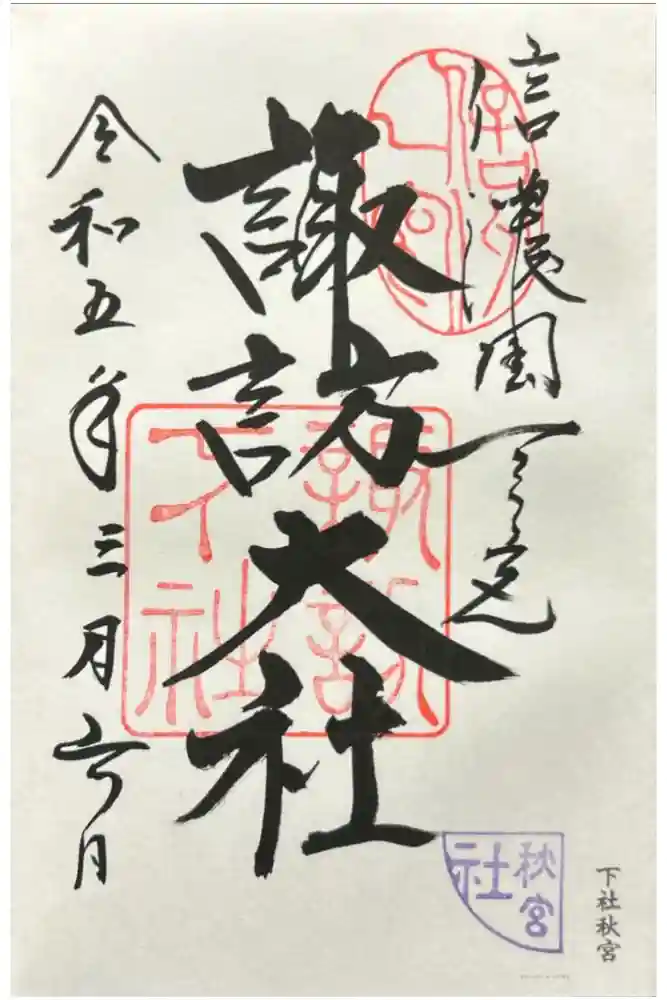 信濃國一之宮
諏訪大社
令和五年三月六日
信濃國一之宮
諏訪
下社
秋宮
社
下社秋宮